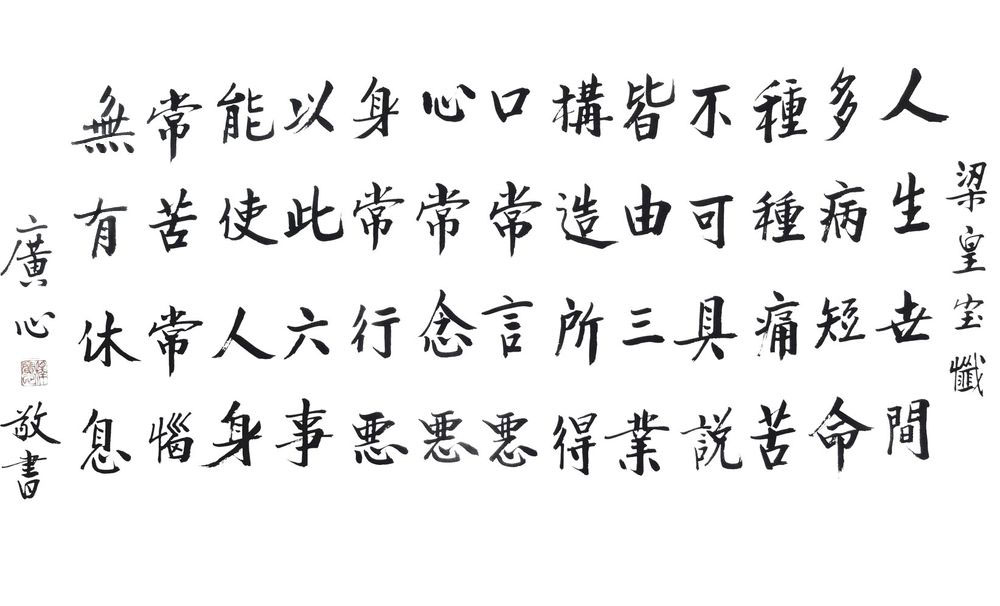 梁皇宝懺
人生世間
多病短命
種種痛苦
不可具説
皆由三業
構造所得
口常言悪
心常念悪
身常行悪
以此六事
能使人身
常苦常惱
無有休息
廣心敬書